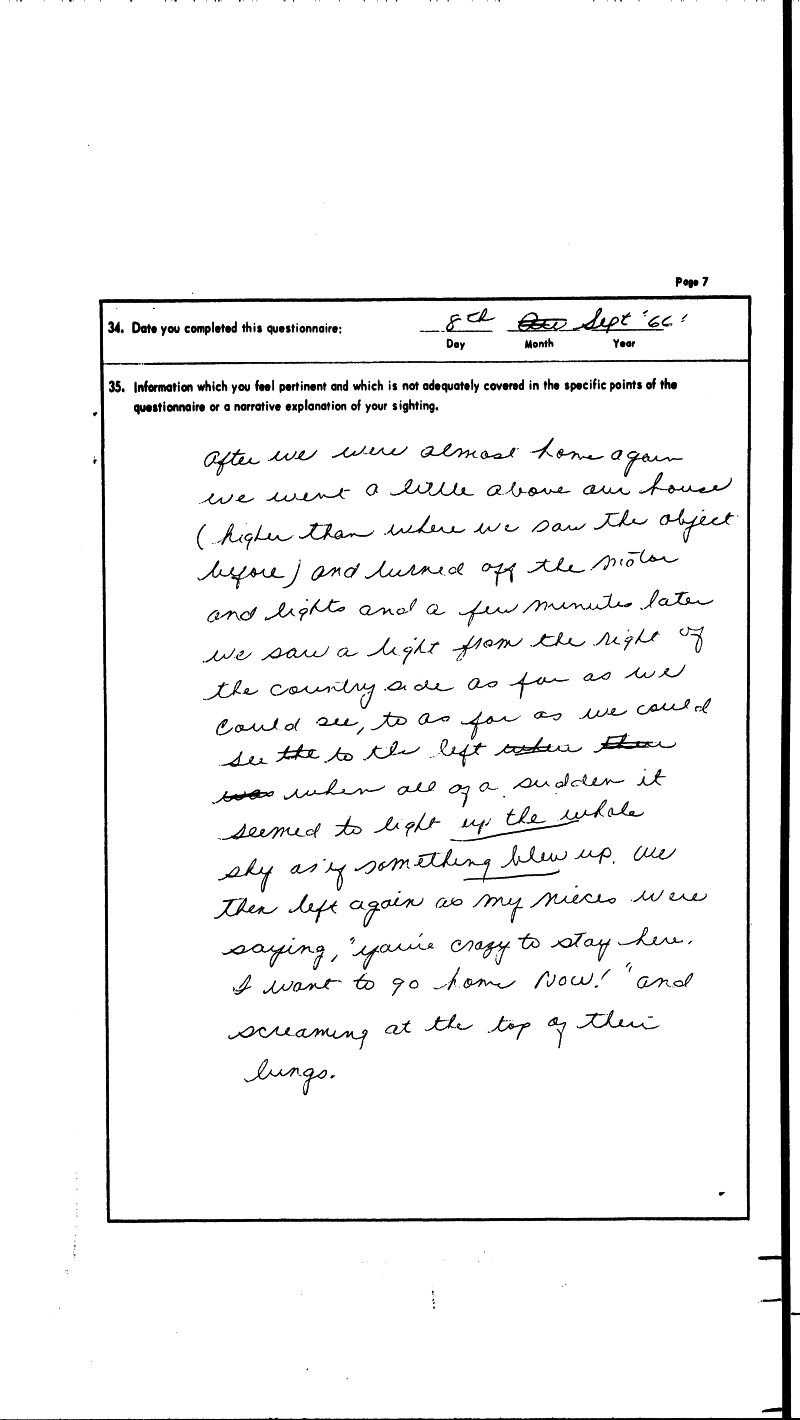 Page 7
34. Date you completed this questionnaire: 8th Sept '66'
Day Month Year
35. Information which you feel pertinent and which is not adequately covered in the specific points of the
questionnaire or a narrative explanation of your sighting.
After we were almost home again
we went a little above our house
(higher than where we saw the object
before) and turned off the motor
and lights and a few minutes later
we saw a light from the right of
the country side as far as we
could see, to as far as we could
see the to the left when there
was when all of a sudden it
seemed to light up the whole
sky as if something blew up. We
then left again as my nieces were
saying, "you're crazy to stay here.
I want to go home Now!" and
screaming at the top of their
lungs.